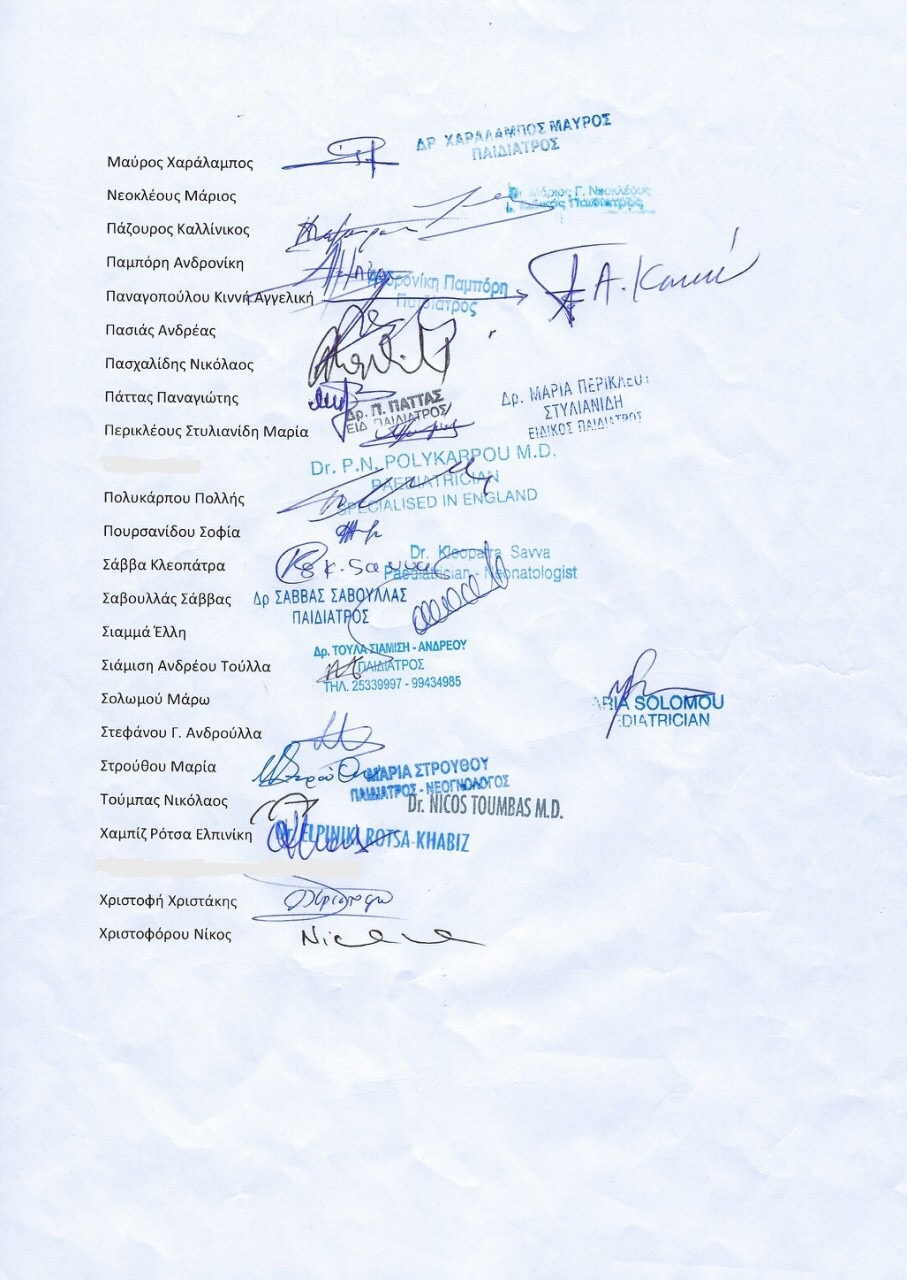 ΔΡ ΧΑΡΑΛΑΜΠΟΣ ΜΑΥΡΟΣ
ΠΑΙΔΙΑΤΡΟΣ
Μαύρος Χαράλαμπος
Νεοκλέους Μάριος
Δρ. Μάριος Γ. Νεοκλέους
Ειδικός Παιδίατρος
Πάζουρος Καλλίνικος
Παμπόρη Ανδρονίκη
Ανδρονίκη Παμπόρη
Παιδίατρος
Παναγοπούλου Κιννή Αγγελική
Α. Κιννή
Πασιάς Ανδρέας
Πασχαλίδης Νικόλαος
Πάττας Παναγιώτης
Δρ. Π. ΠΑΤΤΑΣ
ΕΙΔ ΠΑΙΔΙΑΤΡΟΣ
Δρ. ΜΑΡΙΑ ΠΕΡΙΚΛΕΟΥΣ
ΣΤΥΛΙΑΝΙΔΗ
ΕΙΔΙΚΟΣ ΠΑΙΔΙΑΤΡΟΣ
Περικλέους Στυλιανίδη Μαρία
Dr. P.N. POLYKARPOU M.D.
PAEDIATRICIAN
SPECIALISED IN ENGLAND
Πολυκάρπου Πολλής
Πουρσανίδου Σοφία
Σάββα Κλεοπάτρα
K. Savva
Dr. Kleopatra Savva
Paediatrician - Neonatologist
Σαβουλλάς Σάββας
Δρ ΣΑΒΒΑΣ ΣΑΒΟΥΛΛΑΣ
ΠΑΙΔΙΑΤΡΟΣ
Σιαμμά Έλλη
Σιάμιση Ανδρέου Τούλλα
Δρ. ΤΟΥΛΑ ΣΙΑΜΙΣΗ - ΑΝΔΡΕΟΥ
ΠΑΙΔΙΑΤΡΟΣ
ΤΗΛ. 25339997 - 99434985
Σολωμού Μάρω
ARIA SOLOMOU
DIATRICIAN
Στεφάνου Γ. Ανδρούλλα
Στρούθου Μαρία
ΜΑΡΙΑ ΣΤΡΟΥΘΟΥ
ΠΑΙΔΙΑΤΡΟΣ - ΝΕΟΓΝΟΛΟΓΟΣ
Τούμπας Νικόλαος
Dr. NICOS TOUMBAS M.D.
Χαμπίζ Ρότσα Ελπινίκη
Dr. ELPINIKI ROTSA-KHABIZ
Χριστοφή Χριστάκης
Χριστοφόρου Νίκος